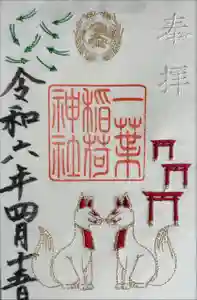 奉拝
一葉
稲荷
神社
令和六年四月日